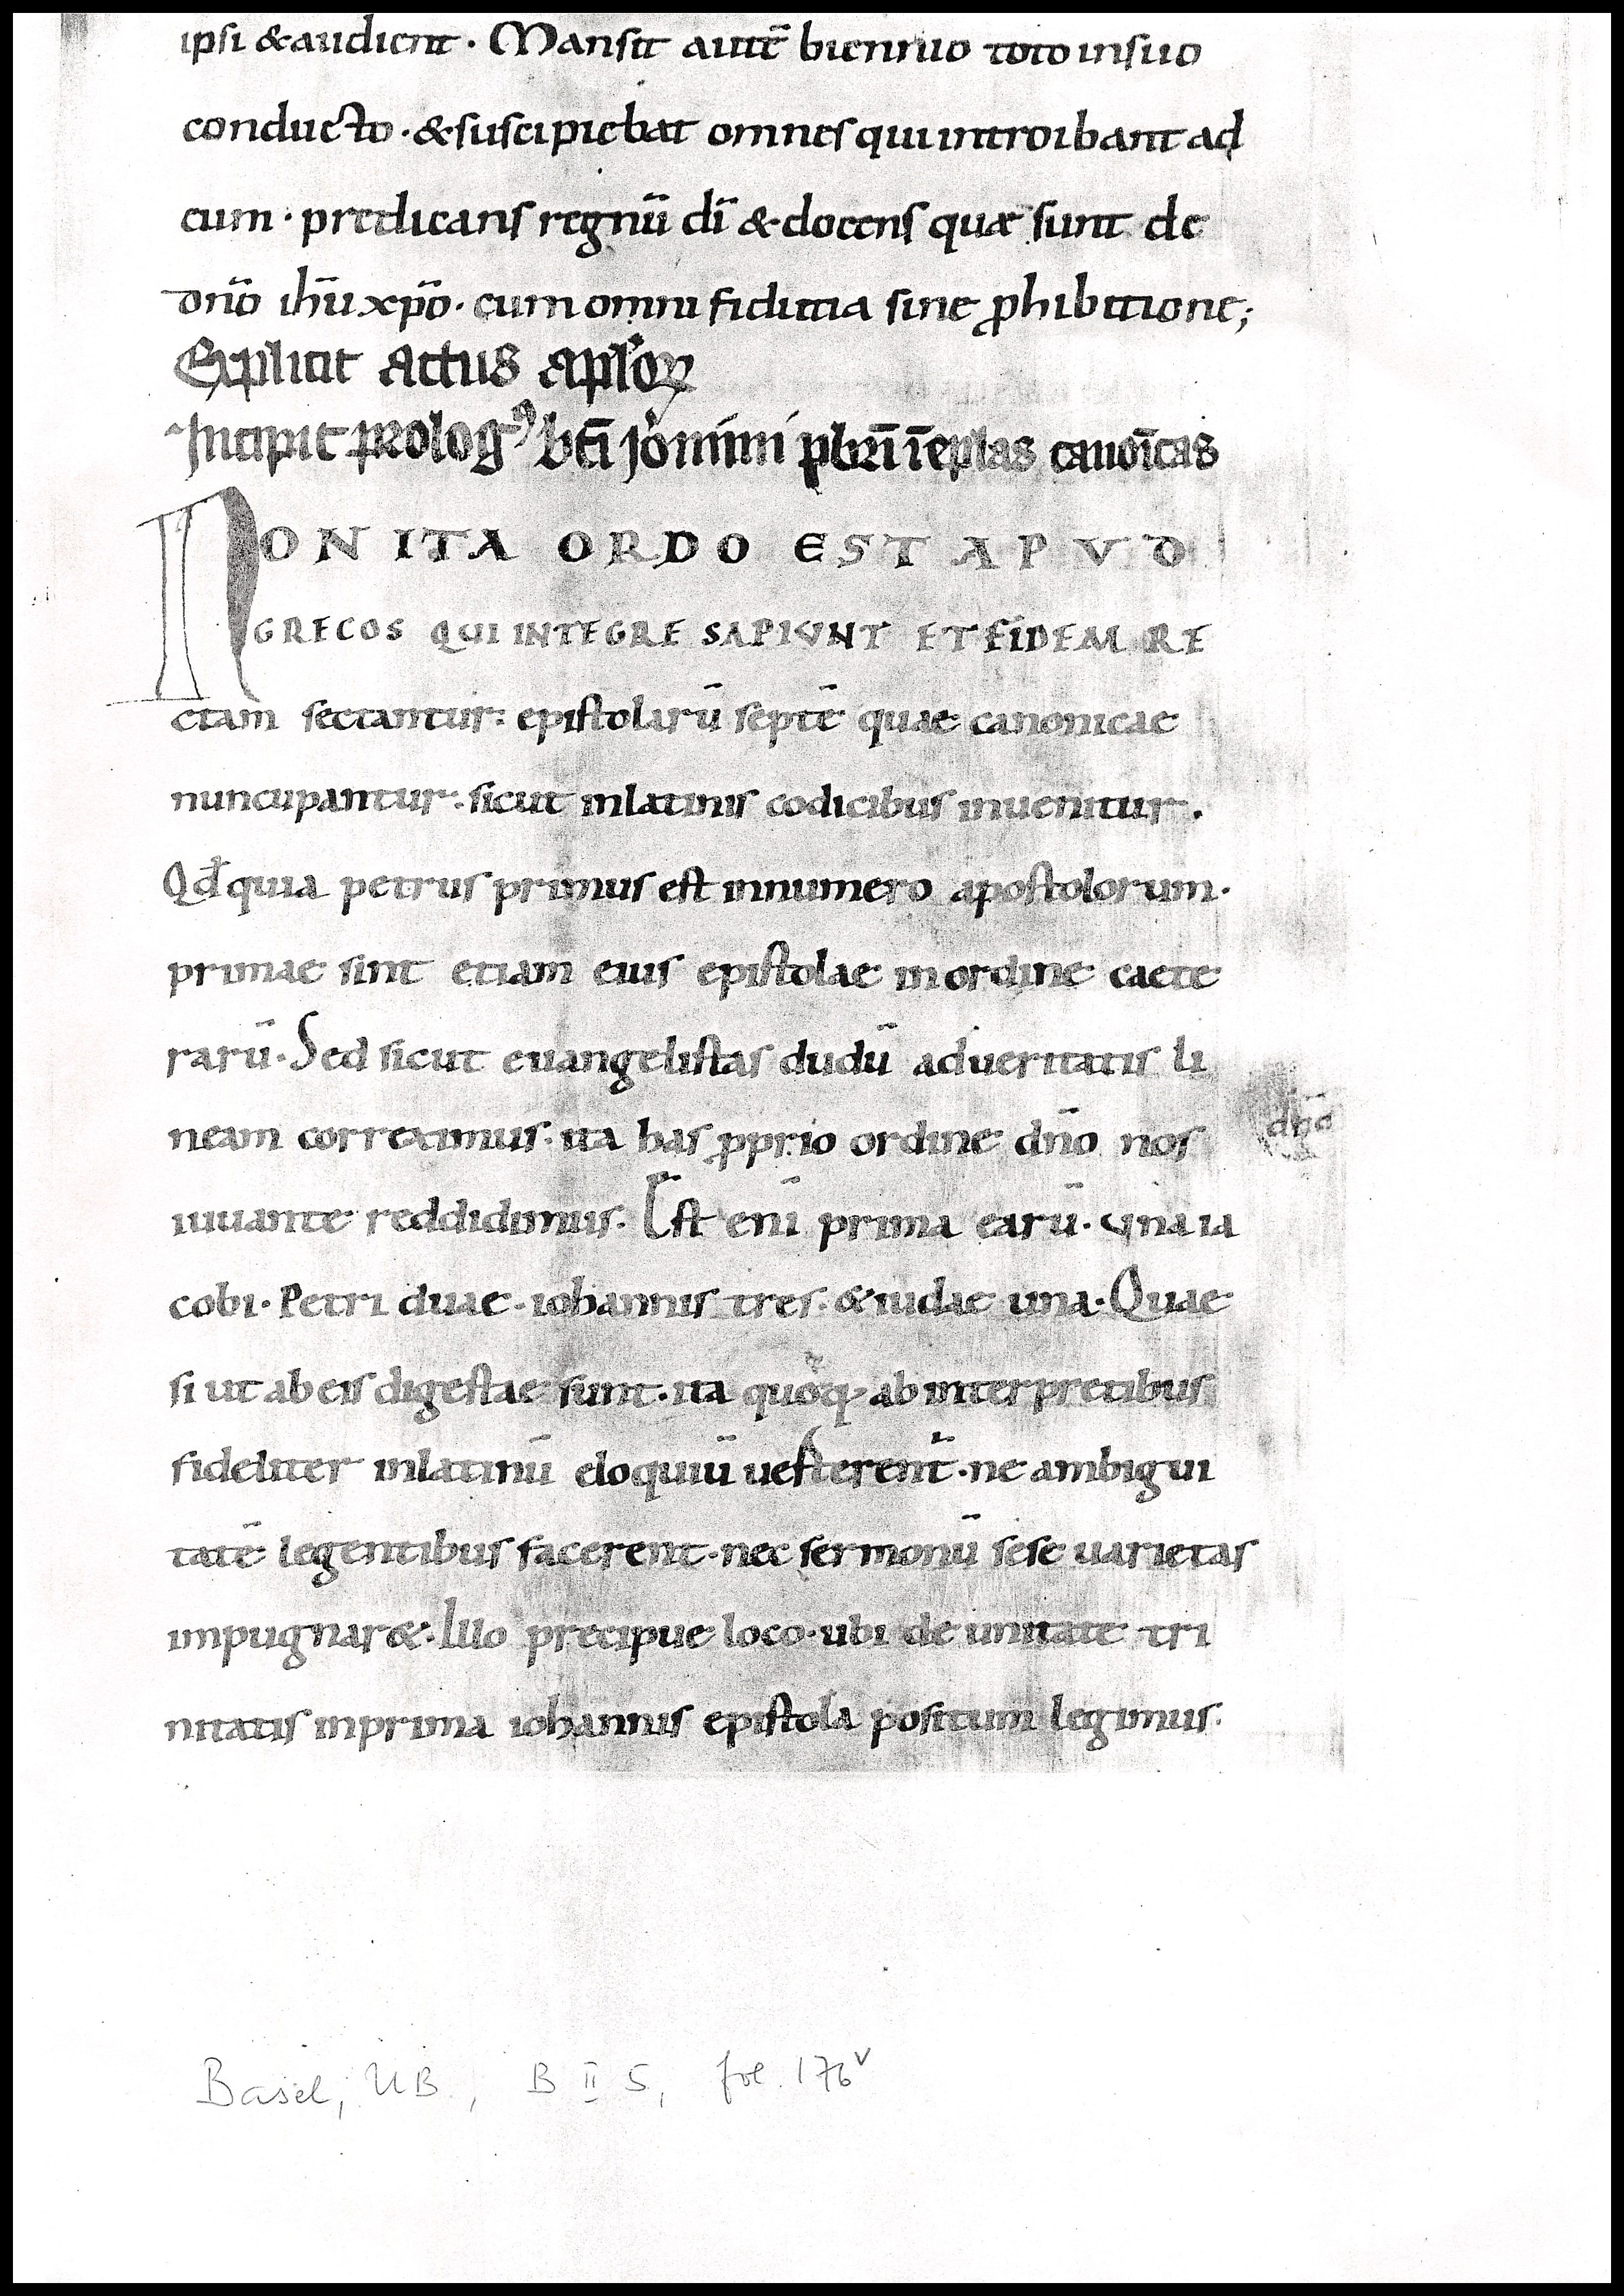 ipsi & audient · Mansit autē biennio toto in suo
conducto · & suscipiebat omnes qui introibant ad
eum · predicans regnū dī & docens quæ sunt de
dn̄o ih̄u xp̄o · cum omni fiducia sine ꝓhibitione;
Explicit Actus aplōꝝ
Incipit prologꝰ bt̄i jeronimi pb̄ri ī ep̄las canōicas
NON ITA ORDO EST APVD
GRECOS QUI INTEGRE SAPIUNT ET FIDEM RE
ctam sectantur: epistolarū septē quae canonicae
nuncupantur · sicut in latinis codicibus inuenitur.
Qđ quia petrus primus est in numero apostolorum ·
primae sint etiam eius epistolae in ordine caete
rarū · Sed sicut euangelistas dudū ad ueritatis li
neam correximus · ita has ꝓprio ordine dn̄o nos
dn̄o
iuuante reddidimus. Est enī prima earū · una ia
cobi · Petri duae · iohannis tres · & iudae una · Quae
si ut ab eis digestae sunt · ita quoq; ab interpretibus
fideliter in latinū eloquiū uesterent̄ · ne ambigui
tatē legentibus facerent · nec sermonū sese uarietas
impugnar& · Illo precipue loco · ubi de unitate tri
nitatis in prima iohannis epistola positum legimus ·
Basel, UB, B II 5, fol. 176v